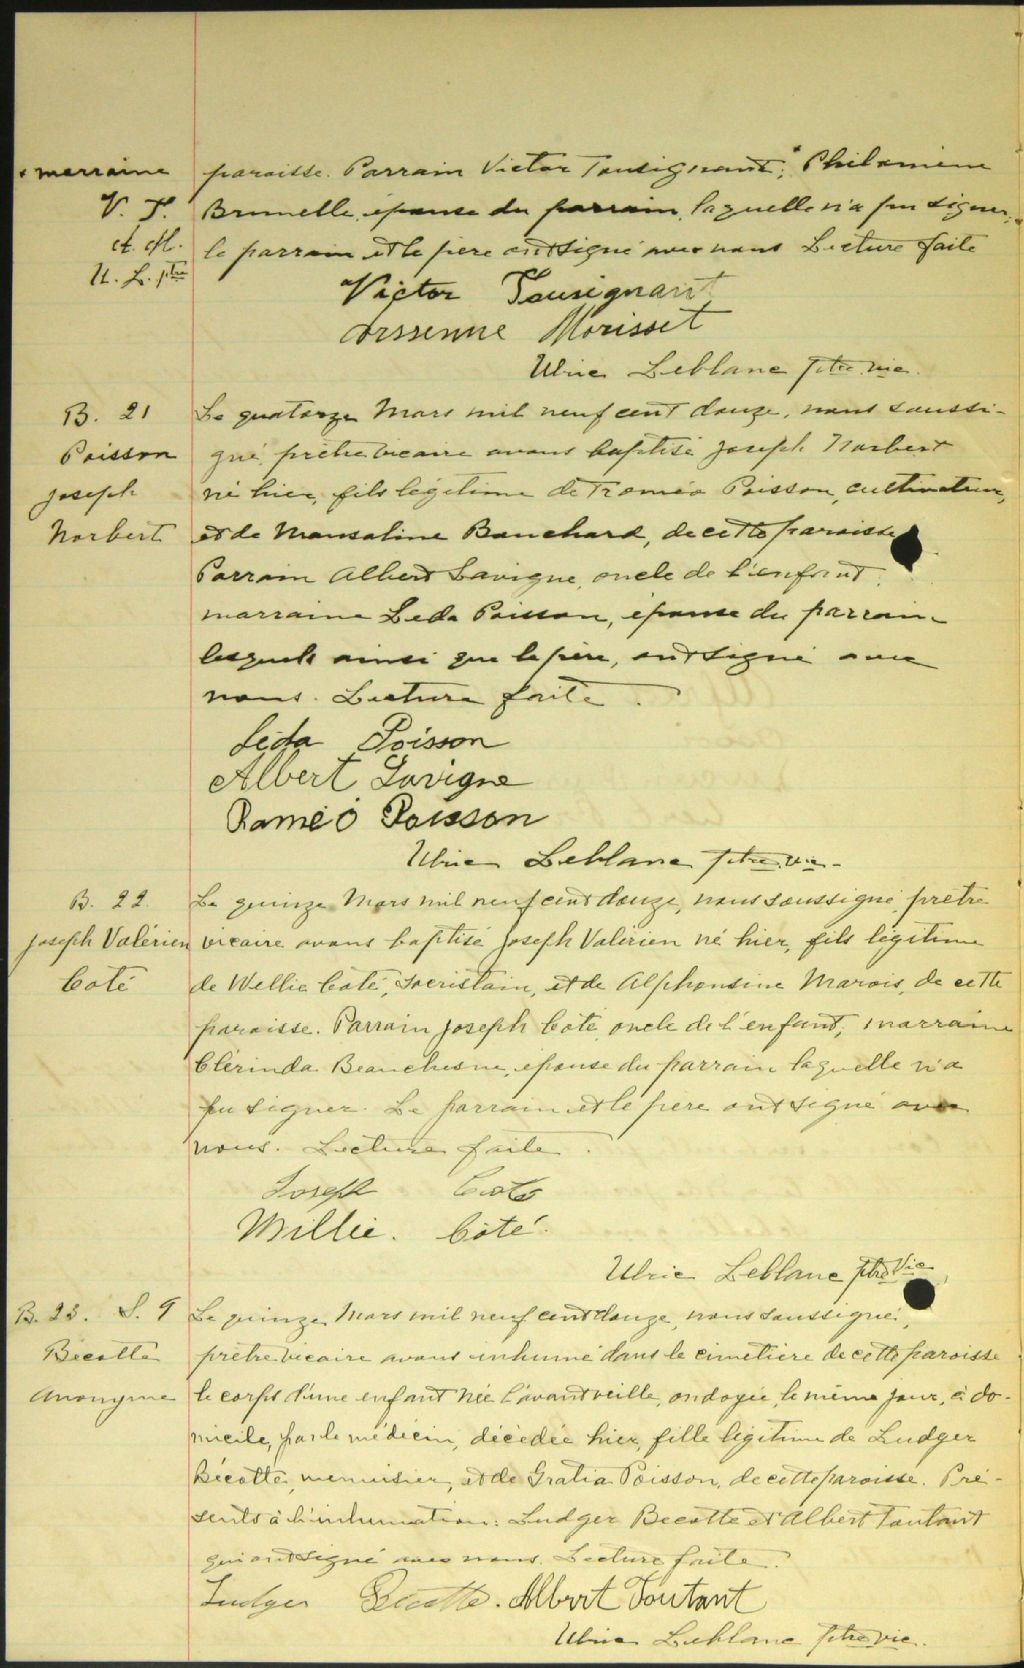 × marraine
V. T.
A. M.
U. L. ptre
paroisse. Parrain Victor Tousignant; × Philomène
Brunelle, épouse du parrain, laquelle n'a pu signer;
le parrain et le père ont signé avec nous Lecture faite
Victor Tousignant
Arssenne Morisset
Ulric Leblanc ptre vic.
B. 21
Poisson
Joseph
Norbert
Le quatorze Mars mil neuf cent douze, nous soussi-
gné, prêtre vicaire avons baptisé Joseph Norbert
né hier, fils légitime de Roméo Poisson, cultivateur,
et de Bouchard, de cette paroisse
Parrain Albert Lavigne, oncle de l'enfant,
marraine Leda Poisson, épouse du parrain
lesquels ainsi que le père, ont signé avec
nous. Lecture faite.
Léda Poisson
Albert Lavigne
Roméo Poisson
Ulric Leblanc ptre vic.
B. 22.
Joseph Valérien
Coté
Le quinze Mars mil neuf cent douze, nous soussigné, prêtre
vicaire avons baptisé Joseph Valérien né hier, fils légitime
de Wellie Côté, sacristain, et de Alphonsine Marois, de cette
paroisse. Parrain Joseph Côté, oncle de l'enfant, marraine
Clérinda Beauchesne, épouse du parrain laquelle n'a
pu signer. Le parrain et le père ont signé avec
nous. Lecture faite.
Joseph Coté
Willie. Côté.
Ulric Leblanc ptre Vic
B. 23. S. 9
Bécotte
Anonyme
Le quinze, Mars mil neuf cent douze, nous soussigné,
prêtre vicaire avons inhumé dans le cimetière de cette paroisse
le corps d'une enfant née l'avant veille, ondoyée, le même jour, à do-
micile, par le médecin, décédée hier, fille légitime de Ludger
Bécotte, menuisier, et de Gratia Poisson, de cette paroisse. Pré-
sents à l'inhumation: Ludger Becotte et Albert Toutant
qui ont signé avec nous. Lecture faite.
Ludger Bécotte. Albert Toutant
Ulric Leblanc ptre vic.